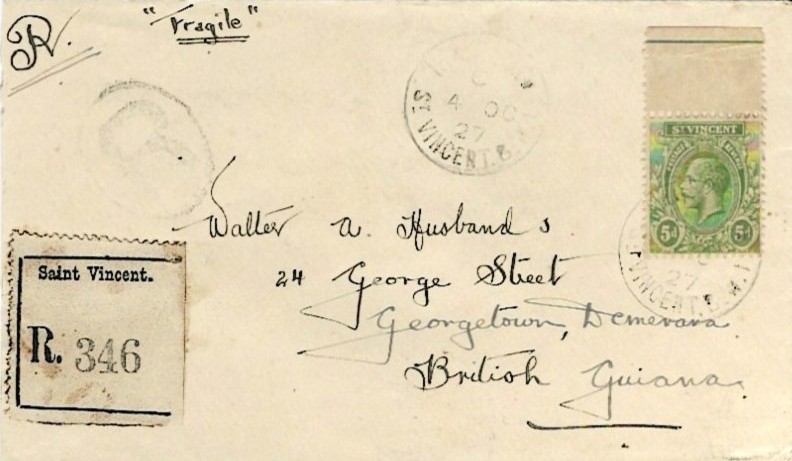 "Fragile"
R.
4 OC
27
ST VINCENT. B.
ST. VINCENT
5d 5d
27
ST VINCENT. B. W. I
Walter A. Husbands.
24 George Street
Georgetown, Demerara
British Guiana.
Saint Vincent.
R. 346